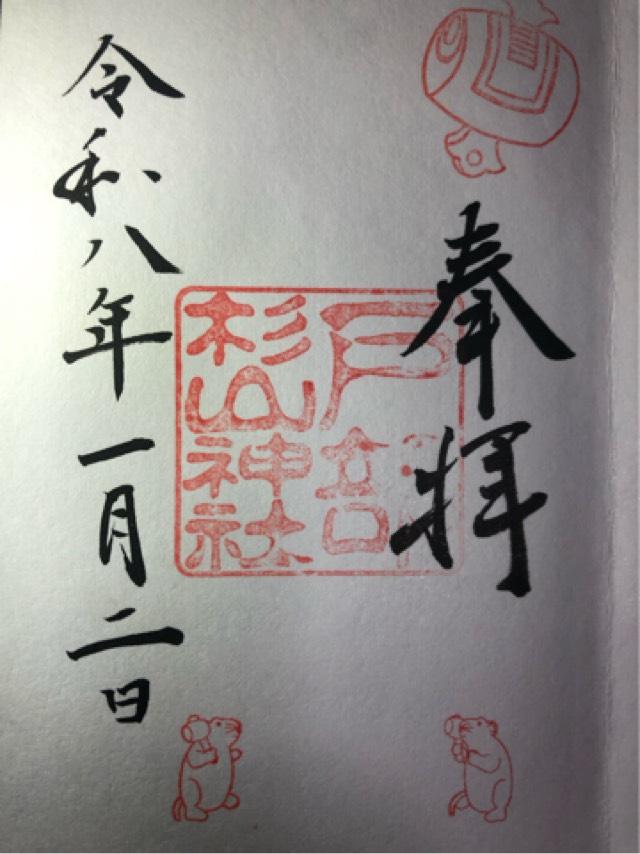 奉拝
戸部
杉山神社
令和八年一月二日